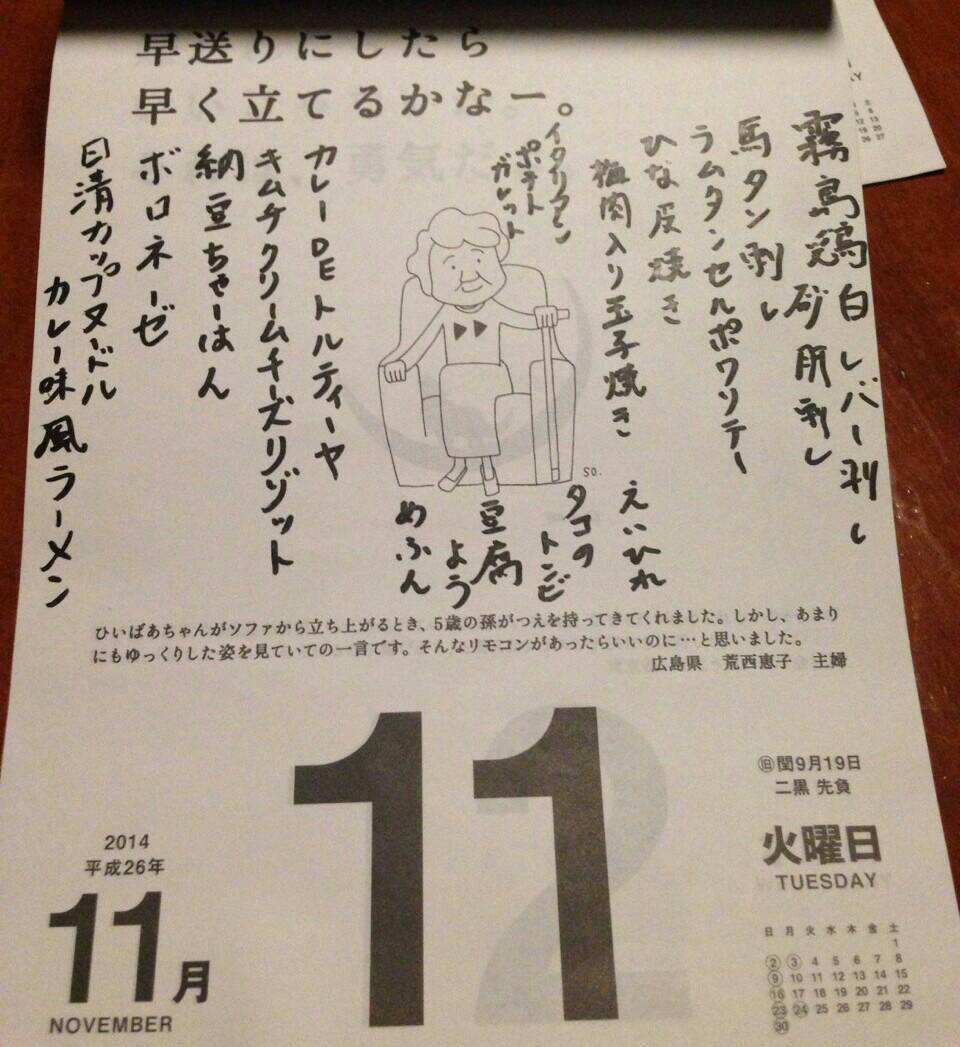 早送りにしたら
早く立てるかなー。
霧島鶏白レバー刺し
砂肝刺し
馬タン刺し
ラムタンセルポワソテー
ひな皮焼き
梅肉入り玉子焼き
イタリアン
ポテト
ガレット
えいひれ
タコの
トンビ
豆腐
よう
めふん
カレーDEトルティーヤ
キムチクリームチーズリゾット
納豆ちゃーはん
ボロネーゼ
日清カップヌードル
カレー味風ラーメン
SO.
ひいばあちゃんがソファから立ち上がるとき、5歳の孫がつえを持ってきてくれました。しかし、あまり
にもゆっくりした姿を見ていての一言です。そんなリモコンがあったらいいのに…と思いました。
広島県 荒西恵子 主婦
11
2014
平成26年
11月
NOVEMBER
旧閏9月19日
二黒 先負
火曜日
TUESDAY
日 月 火 水 木 金 土
1
2 3 4 5 6 7 8
9 10 11 12 13 14 15
16 17 18 19 20 21 22
23 24 25 26 27 28 29
30